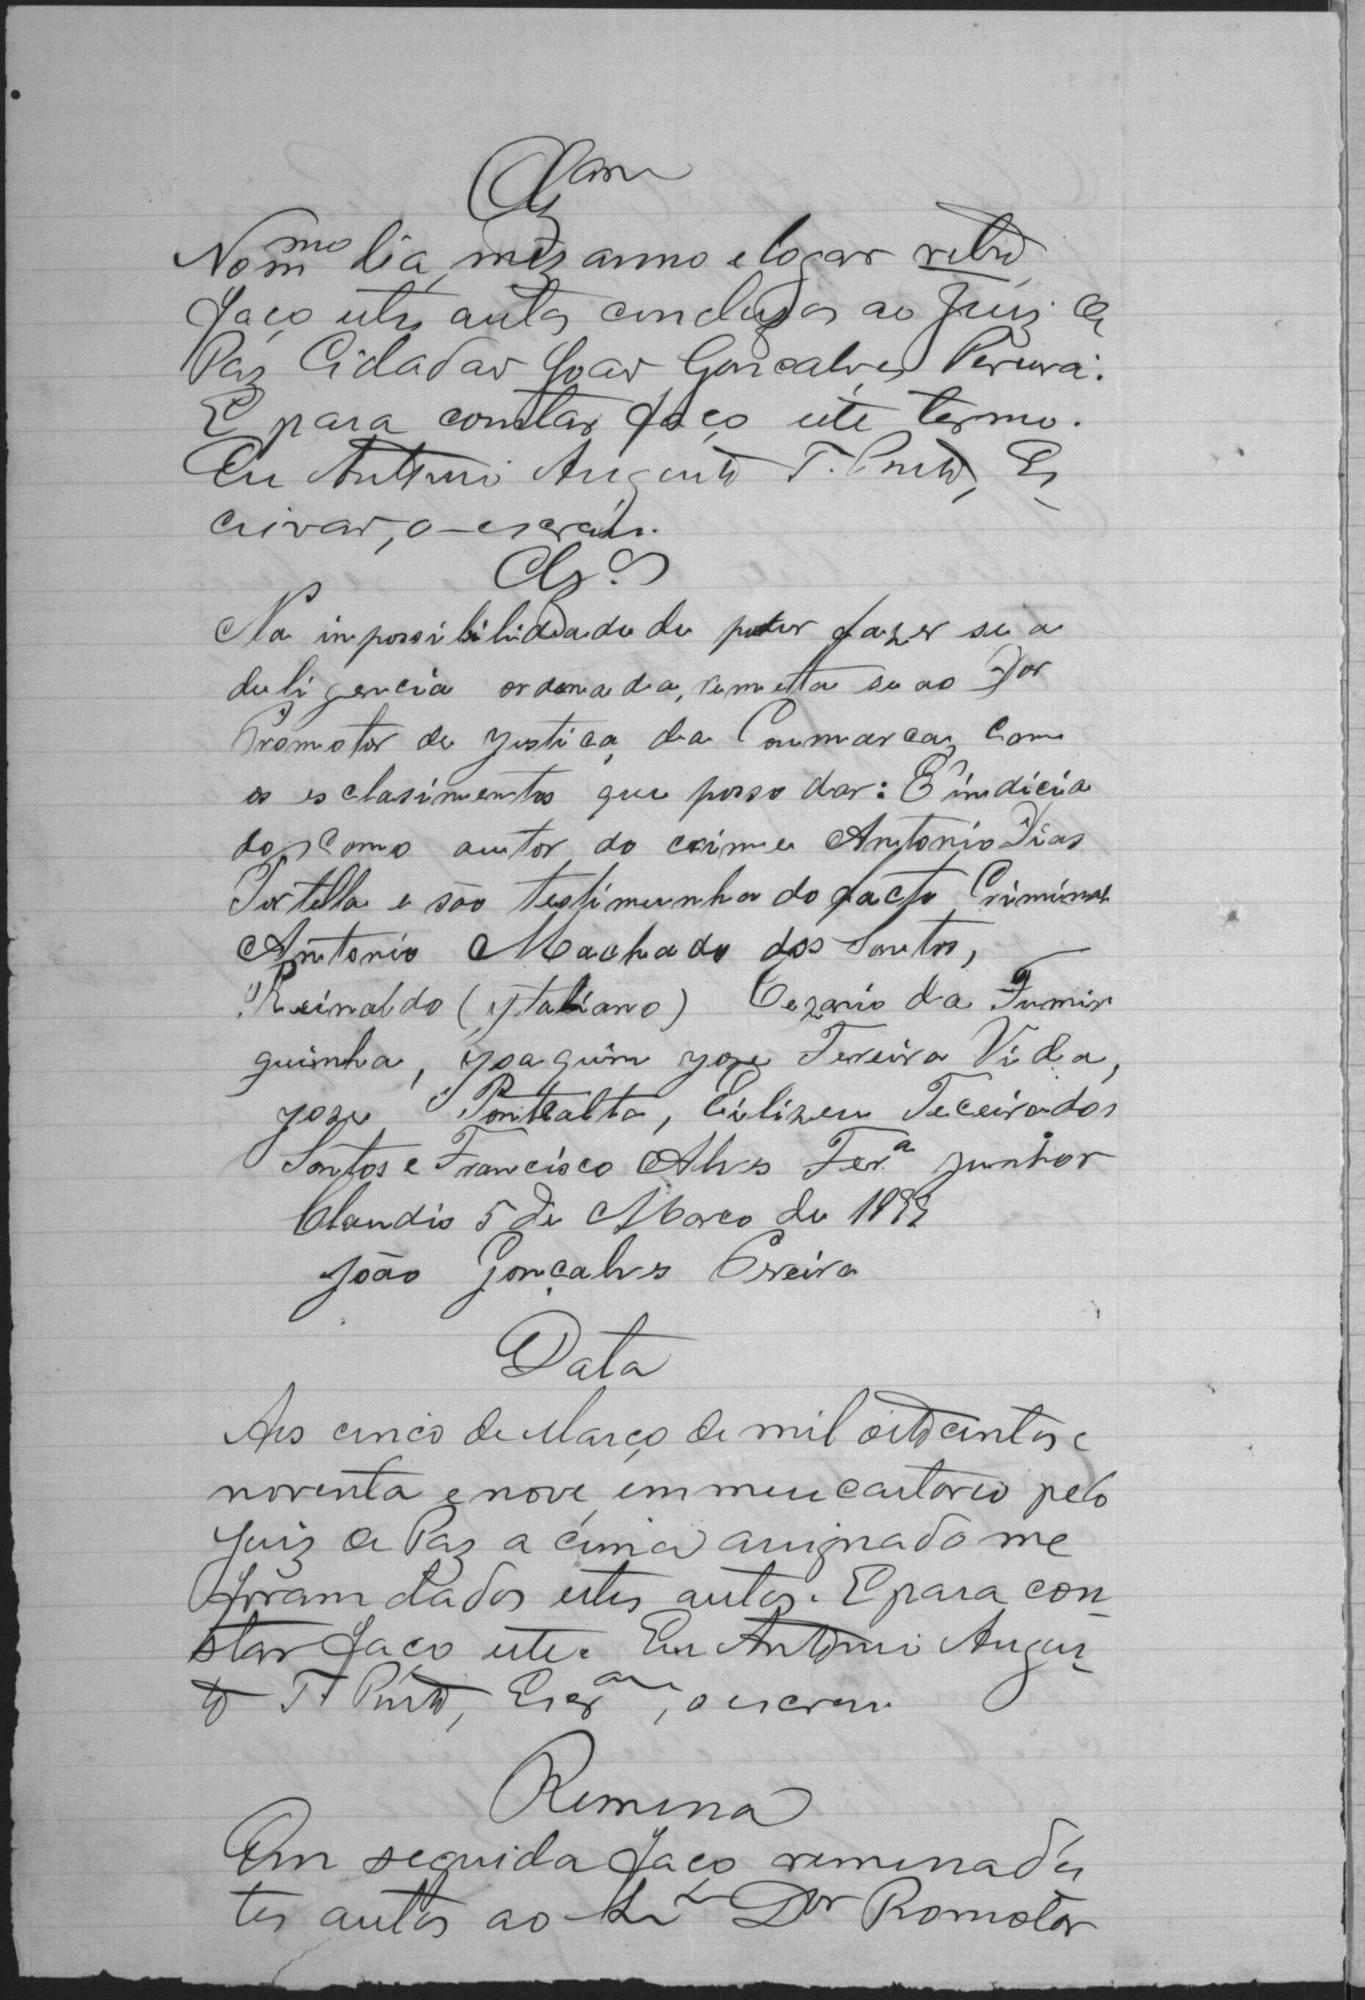 Clsam
No mmo dia, mez anno e logar retro
faço estes autos conclusos ao Juiz de
Paz Cidadão João Gonçalves Pereira.
E para constar faço este termo.
Eu Antonio Augusto T. Pinto, Es-
crivão, o escrevi.
Clsos
Na impossibilidade de poder fazer se a
deligencia ordenada, remetta se ao Dor
Promotor de Justiça da Coumarca, Com
os esclasimentos que posso dar: E indicia
do Como autor do crime Antonio Dias
Portella e são testimunha do facto Criminal
Antonio Machado dos Santos,
Reinaldo (Ytaliano) Cezario da Fumin
guinha, Joaquim Joze Fereira Vida,
Joze Pontealta, Eilizeu Teceira dos
Santos e Francisco Alves Fera junhor
Claudio 5 de Março de 1899
João Gonçalves Pereira
Data
Aos cinco de Março de mil oitocentos e
noventa e nove, em meu cartorio pelo
Juiz de Paz a cima assignado me
foram dados estes autos. E para con-
star faço este. Eu Antonio Augus-
to T. Pinto, Escram, o escrevi
Remessa
Em seguida faço remessa des
tes autos ao Dor Romotor